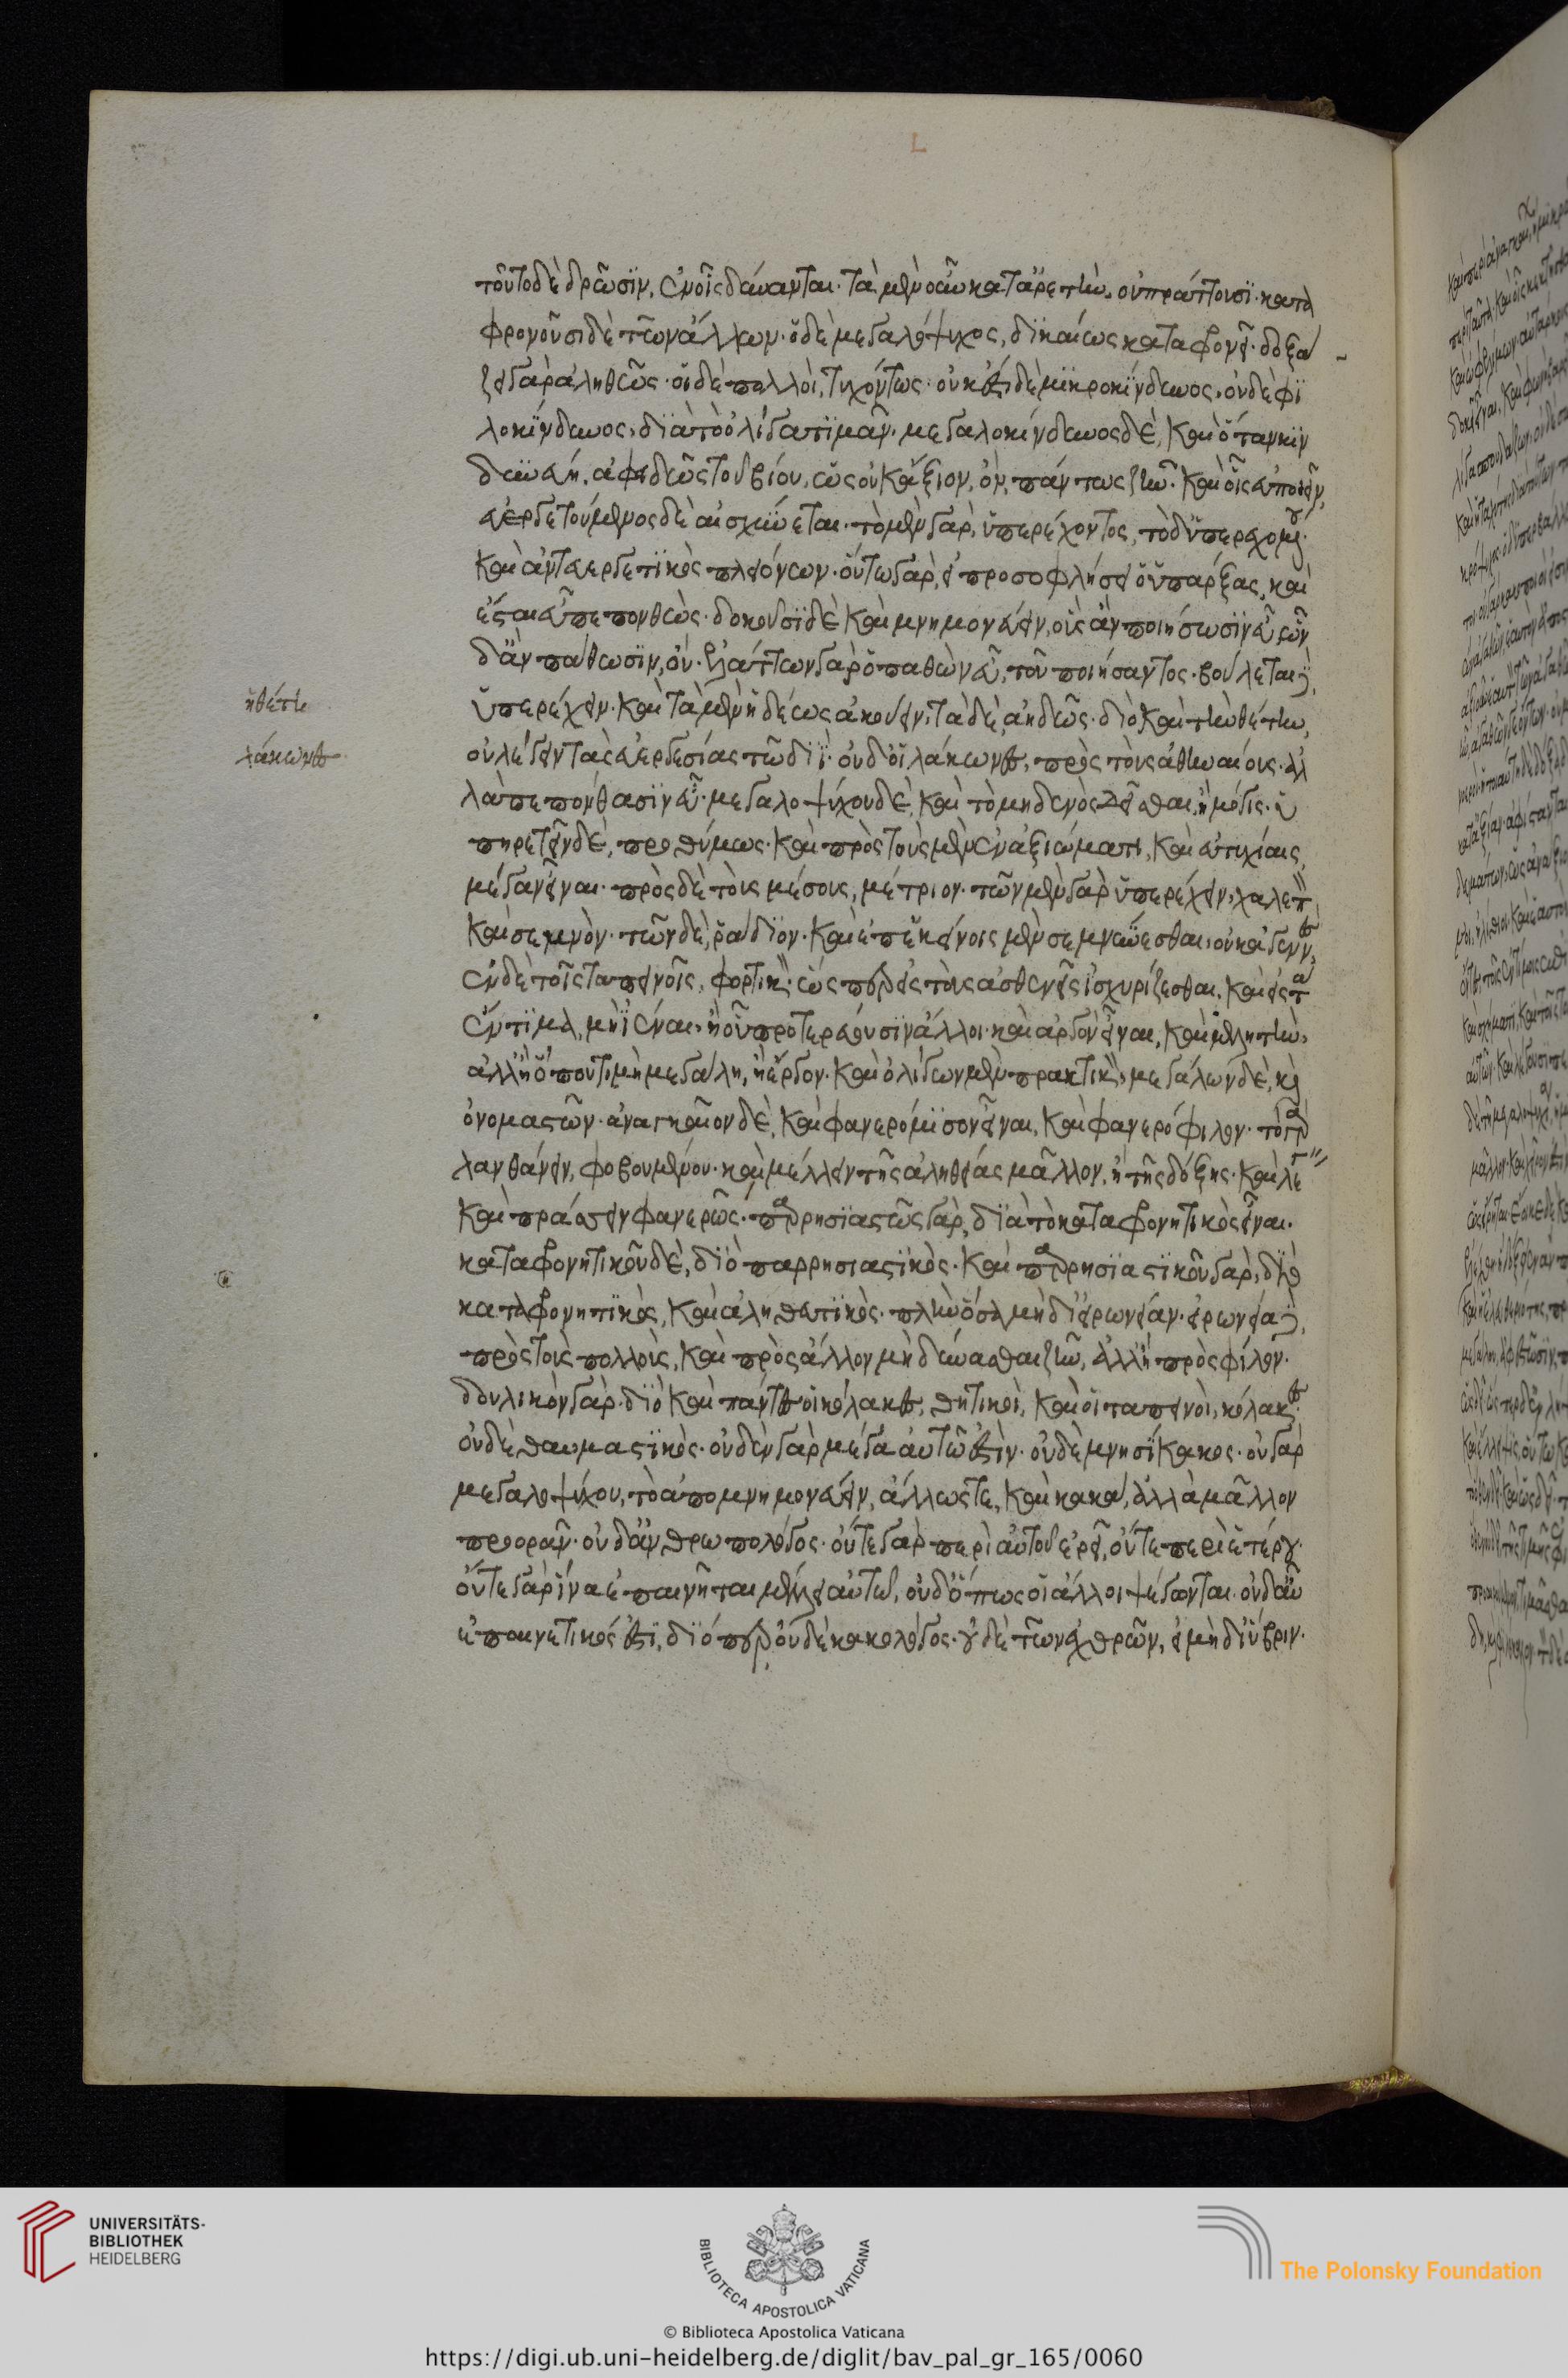 τοῦτο δὲ δρῶσιν, ἐν οἷς δύνανται. τὰ μὲν οὖν κατ' ἀρετὴν, οὐ πράττουσι. κατα
φρονοῦσι δὲ τῶν ἄλλων. ὁ δὲ μεγαλόψυχος, δικαίως καταφρονεῖ. δοξά
ζει γὰρ ἀληθῶς. οἱ δὲ πολλοὶ, τυχόντως. οὐκ ἔστι δὲ μικροκίνδυνος, οὐδὲ φι
λοκίνδυνος, διὰ τὸ ὀλίγα τιμᾶν. μεγαλοκίνδυνος δὲ, καὶ ὅταν κιν
δυνεύη, ἀφειδὴς τοῦ βίου, ὡς οὐκ ἄξιον, ὂν, πάντως ζῆν. καὶ οἷος εὐποιεῖν,
εὐεργετούμενος δὲ αἰσχύνεται. τὸ μὲν γὰρ, ὑπερέχοντος, τὸ δ' ὑπερεχομένου.
καὶ ἀντευεργετικὸς πλειόνων. οὕτω γὰρ, εἰ προσοφλήσει ὁ ὑπάρξας, καὶ
ἔσται εὖ πεπονθὼς. δοκοῦσι δὲ καὶ μνημονεύειν, οἷς ἂν ποιήσωσιν εὖ, ὧν
δ' ἂν πάθωσιν, οὔ. ἐλάττων γὰρ ὁ παθὼν εὖ, τοῦ ποιήσαντος. βούλεται δ'
ὑπερέχειν. καὶ τὰ μὲν ἡδέως ἀκούειν, τὰ δὲ, ἀηδῶς. διὸ καὶ τὴν θέτιν,
ἡ θέτις
οὐ λέγειν τὰς εὐεργεσίας τῶ διΐ. οὐδ' οἱ λάκωνες, πρὸς τοὺς ἀθηναίους. ἀλ
λάκωνες
λ' ἃ πεπόνθασιν εὖ. μεγαλοψύχου δὲ, καὶ τὸ μηδενὸς δεῖσθαι, ἢ μόλις. ὑ
πηρετεῖν δὲ, προθύμως. καὶ πρὸς τοὺς μὲν ἐν ἀξιώματι, καὶ εὐτυχίαις,
μέγαν εἶναι. πρὸς δὲ τοὺς μέσους, μέτριον. τῶν μὲν γὰρ ὑπερέχειν, χαλεπὸν
καὶ σεμνὸν. τῶν δὲ, ῥάδιον. καὶ ἐπ' ἐκείνοις μὲν σεμνύνεσθαι, οὐκ ἀγεννὲς,
ἐν δὲ τοῖς ταπεινοῖς, φορτικὸν. ὥσπερ εἰς τοὺς ἀσθενεῖς ἰσχυρίζεσθαι. καὶ εἰς τὰ
ἔντιμα, μὴ ἰέναι, ἢ οὗ πρωτεύουσιν ἄλλοι. καὶ ἀργὸν εἶναι, καὶ μελλητὴν,
ἀλλ' ἢ ὅπου τιμὴ μεγάλη, ἢ ἔργον. καὶ ὀλίγων μὲν πρακτικὸν, μεγάλων δὲ, καὶ
ὀνομαστῶν. ἀναγκαῖον δὲ, καὶ φανερόμισον εἶναι, καὶ φανερόφιλον. τὸ γὰρ
λανθάνειν, φοβουμένου. καὶ μέλλειν τῆς ἀληθείας μᾶλλον, ἢ τῆς δόξης. καὶ λέγειν
καὶ πράττειν φανερῶς. παρρησιαστὴς γὰρ, διὰ τὸ καταφρονητικὸς εἶναι.
καταφρονητικοῦ δὲ, διὸ παρρησιαστικὸς. καὶ παρρησιαστικοῦ γὰρ, διὸ
καταφρονητικὸς, καὶ ἀληθευτικὸς. πλὴν ὅσα μὴ δι' εἰρωνείαν. εἰρωνεία δ',
πρὸς τοὺς πολλοὺς, καὶ πρὸς ἄλλον μὴ δύνασθαι ζῆν, ἀλλ' ἢ πρὸς φίλον.
δουλικὸν γὰρ. διὸ καὶ πάντες οἱ κόλακες, θητικοὶ, καὶ οἱ ταπεινοὶ, κόλακες.
οὐδὲ θαυμαστικὸς. οὐδὲν γὰρ μέγα αὐτῶ ἐστὶν. οὐδὲ μνησίκακος. οὐ γὰρ
μεγαλοψύχου, τὸ ἀπομνημονεύειν, ἄλλως τε, καὶ κακά, ἀλλὰ μᾶλλον
προορᾶν. οὐδ' ἀνθρωπολόγος. οὔτε γὰρ περὶ αὐτοῦ ἐρεῖ, οὔτε περὶ ἑτέρου.
οὔτε γὰρ ἵνα ἐπαινῆται μέλει αὐτῶ, οὐδ' ὅπως οἱ ἄλλοι ψέγωνται. οὐδ' αὖ
ἐπαινετικός ἐστι, διόπερ οὐδὲ κακολόγος. οὐδὲ τῶν ἐχθρῶν, εἰ μὴ δι' ὕβριν.
UNIVERSITÄTS-
BIBLIOTHEK
HEIDELBERG
BIBLIOTECA APOSTOLICA VATICANA
© Biblioteca Apostolica Vaticana
The Polonsky Foundation
https://digi.ub.uni-heidelberg.de/diglit/bav_pal_gr_165/0060